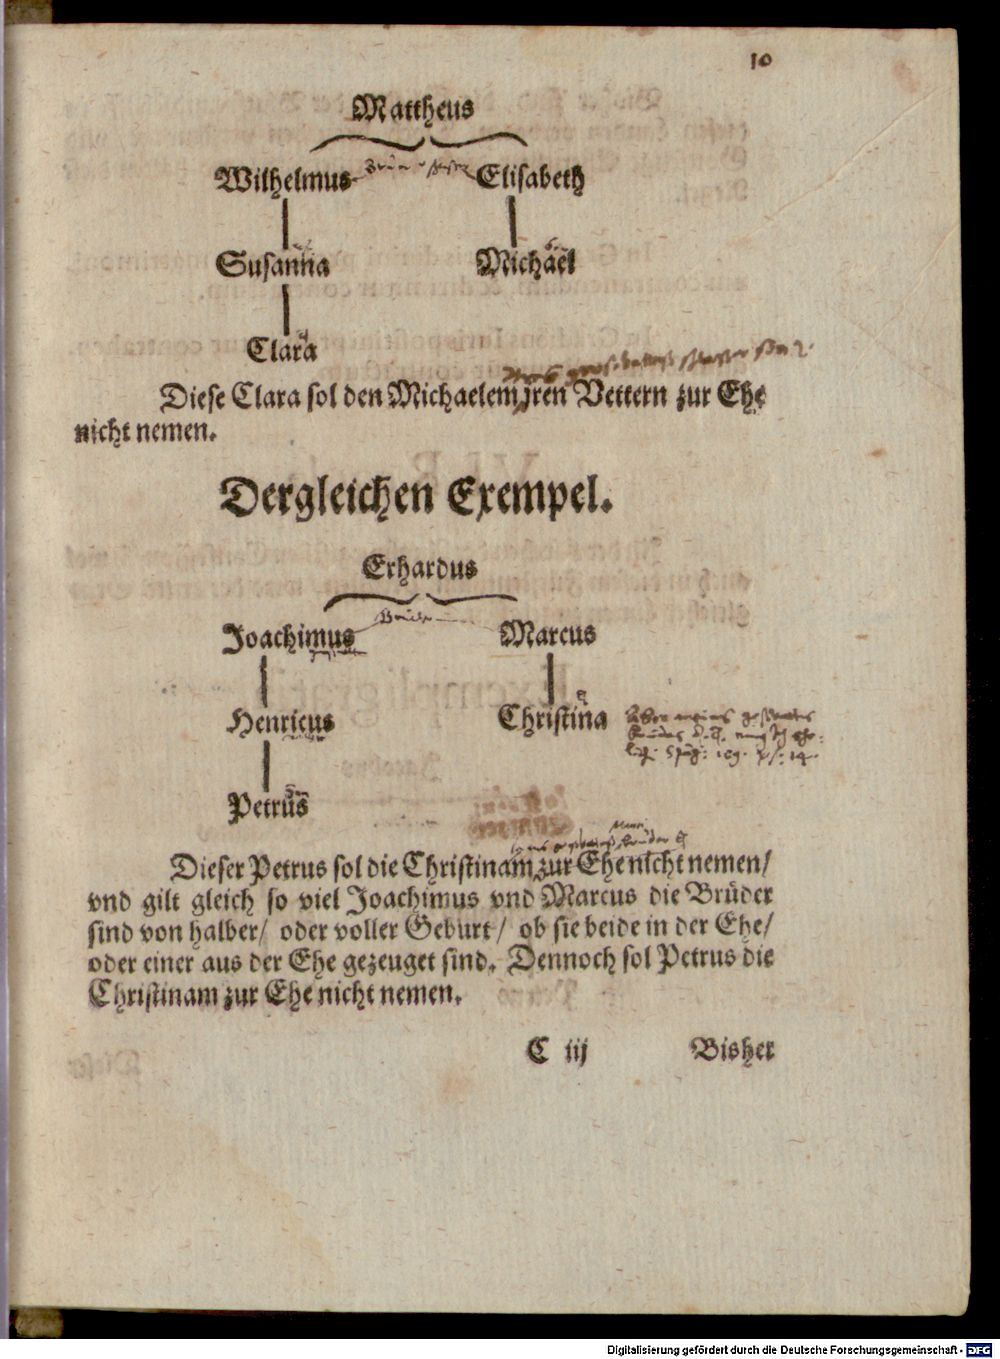 10
Mattheus
Wilhelmus Elisabeth
Susanna Michael
Clara
Diese Clara sol den Michaelem jren Vettern zur Ehe
nicht nemen.
Dergleichen Exempel.
Erhardus
Joachimus Marcus
Henricus Christina
Petrus
Dieser Petrus sol die Christinam zur Ehe nicht nemen/
vnd gilt gleich so viel Joachimus vnd Marcus die Brüder
sind von halber/ oder voller Geburt/ ob sie beide in der Ehe/
oder einer aus der Ehe gezeuget sind. Dennoch sol Petrus die
Christinam zur Ehe nicht nemen.
C iij Bisher
Digitalisierung gefördert durch die Deutsche Forschungsgemeinschaft - DFG